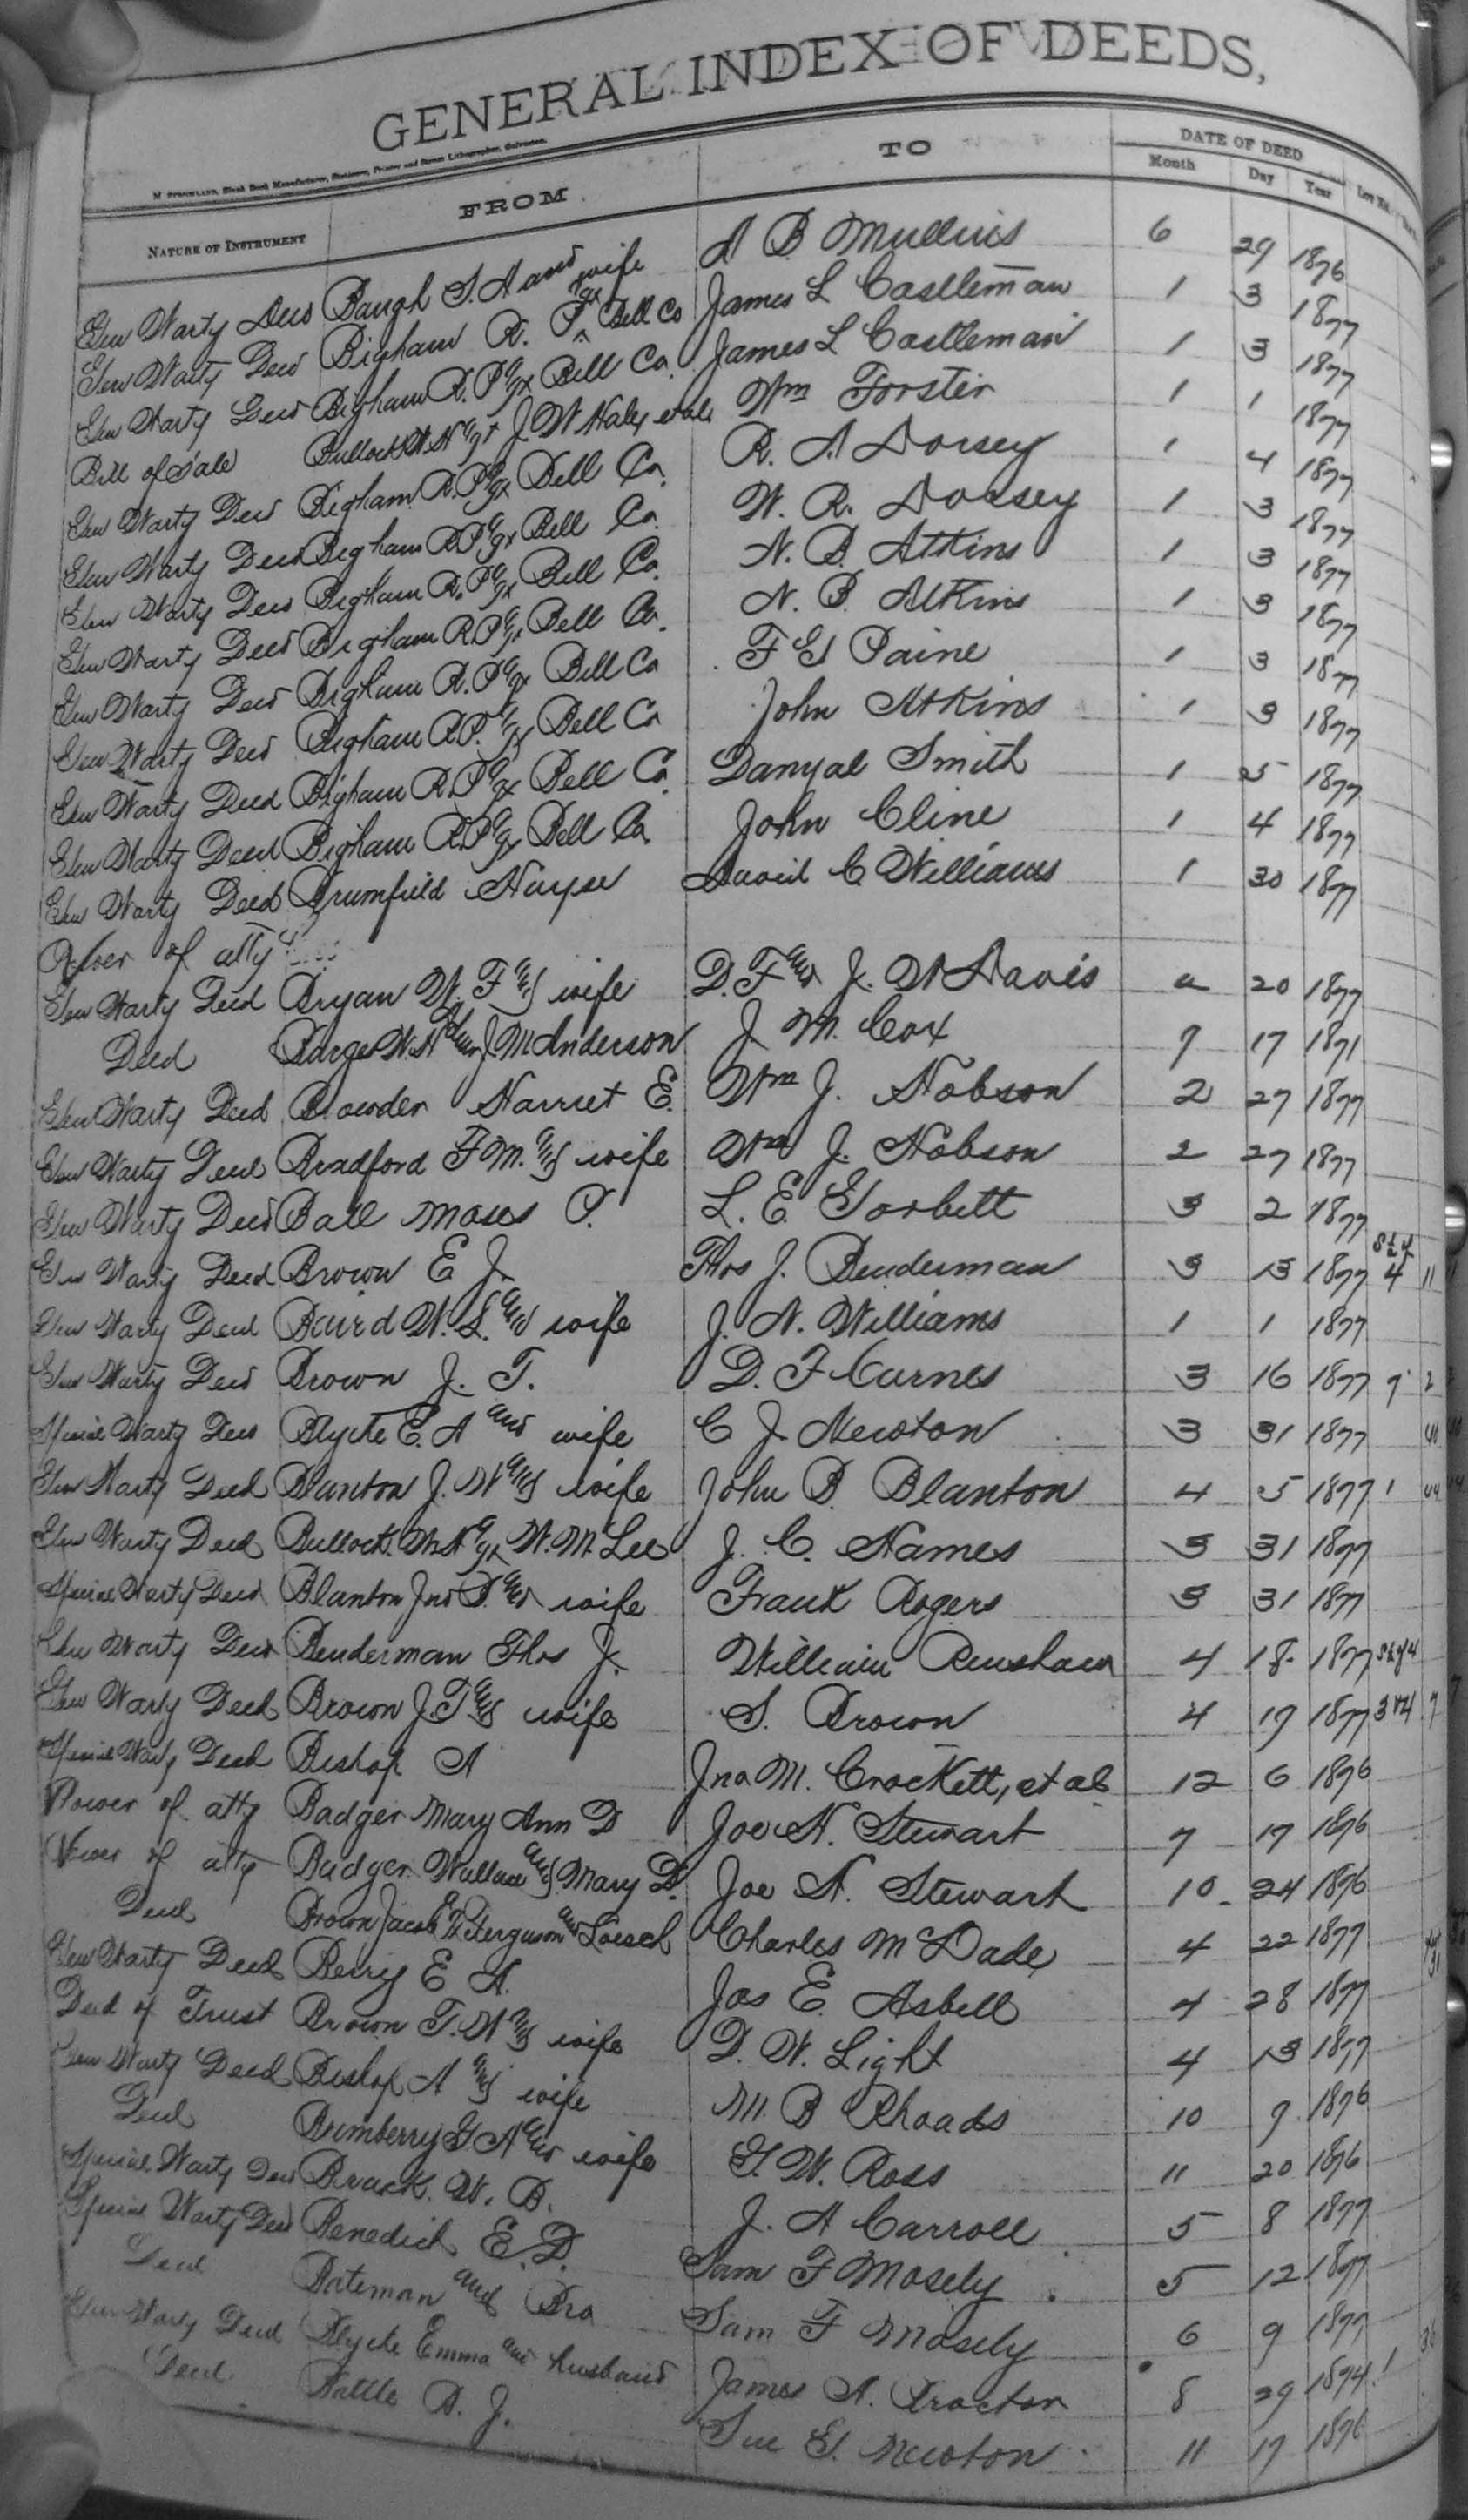 GENERAL INDEX OF DEEDS,
M. STRICKLAND, Blank Book Manufacturer, Stationer, Printer and Steam Lithographer, Galveston.
NATURE OF INSTRUMENT FROM TO DATE OF DEED
Month Day Year
Gen Warty Deed Baugh S. A and wife A B Mullins 6 29 1876
Gen Warty Deed Bigham R. P Bell Co James L Castleman 1 3 1877
Gen Warty Deed Bigham R. P Bell Co James L Castleman 1 3 1877
Bill of Sale Bullock W H J W Haley et als Wm Forster 1 1 1877
Gen Warty Deed Bigham R. P Bell Co. R. A Dorsey 1 4 1877
Gen Warty Deed Bigham R. P Bell Co. W. R. Dorsey 1 3 1877
Gen Warty Deed Bigham R. P Bell Co. N. B. Atkins 1 3 1877
Gen Warty Deed Bigham R. P Bell Co. N. B. Atkins 1 3 1877
Gen Warty Deed Bigham R. P Bell Co F G Paine 1 3 1877
Gen Warty Deed Bigham R. P. Bell Co John Atkins 1 3 1877
Gen Warty Deed Bigham R. P Bell Co. Danyal Smith 1 5 1877
Gen Warty Deed Bigham R. P Bell Co. John Cline 1 4 1877
Gen Warty Deed Brumfield David C Williams 1 30 1877
Power of atty
Gen Warty Deed Bryan W. F and wife D. F and J. W Davis 20 1877
Deed Barge W. H J M Anderson J M. Cox 17 1871
Gen Warty Deed Bowder Harriet E. Wm J. Hobson 2 27 1877
Gen Warty Deed Bradford F M. and wife Wm J. Hobson 2 27 1877
Gen Warty Deed Ball Moses P. L. E. Gorbett 3 2 1877
Gen Warty Deed Brown E J. Thos J. Benderman 3 13 1877 4 11
Gen Warty Deed Baird W. L. and wife J. N. Williams 1 1 1877
Gen Warty Deed Brown J. T. D. F Carnes 3 16 1877 2
Special Warty Deed Blythe E. A and wife C J Newton 3 31 1877
Gen Warty Deed Blanton J. W and wife John B Blanton 4 5 1877 1
Gen Warty Deed Bullock W H W. M. Lee J. C. Hames 3 31 1877
Special Warty Deed Blanton Jno B. and wife Frank Rogers 3 31 1877
Gen Warty Deed Benderman Thos J. William Renshaw 4 18 1877
Gen Warty Deed Brown J. T and wife S. Brown 4 19 1877 3 & 4 7
Special Warty Deed Bishop A Jno M. Crockett, et al 12 6 1876
Power of atty Badger Mary Ann D Joe H. Stewart 7 17 1876
Power of atty Badger Wallace and Mary D. Joe H. Stewart 10 24 1876
Deed Brown Jacob Ferguson and Loesch Charles M Dade 4 22 1877
Gen Warty Deed Berry E A. Jas E. Asbell 4 28 1877
Deed of Trust Brown T. W and wife D. W. Light 4 13 1877
Gen Warty Deed Bishop A and wife M B Rhoads 10 9 1876
Deed Brimberry G A and wife G. W. Ross 11 20 1876
Special Warty Deed Brack W. B. J. A Carroll 5 8 1877
Special Warty Deed Benedick E. D. Sam F Mosely 5 12 1877
Deed Bateman and Bro Sam F Mosely 6 9 1877
Gen Warty Deed Blythe Emma and husband James A. Procter 8 29 1874
Deed Battle B. J. Sue E. Newton 11 17 1876